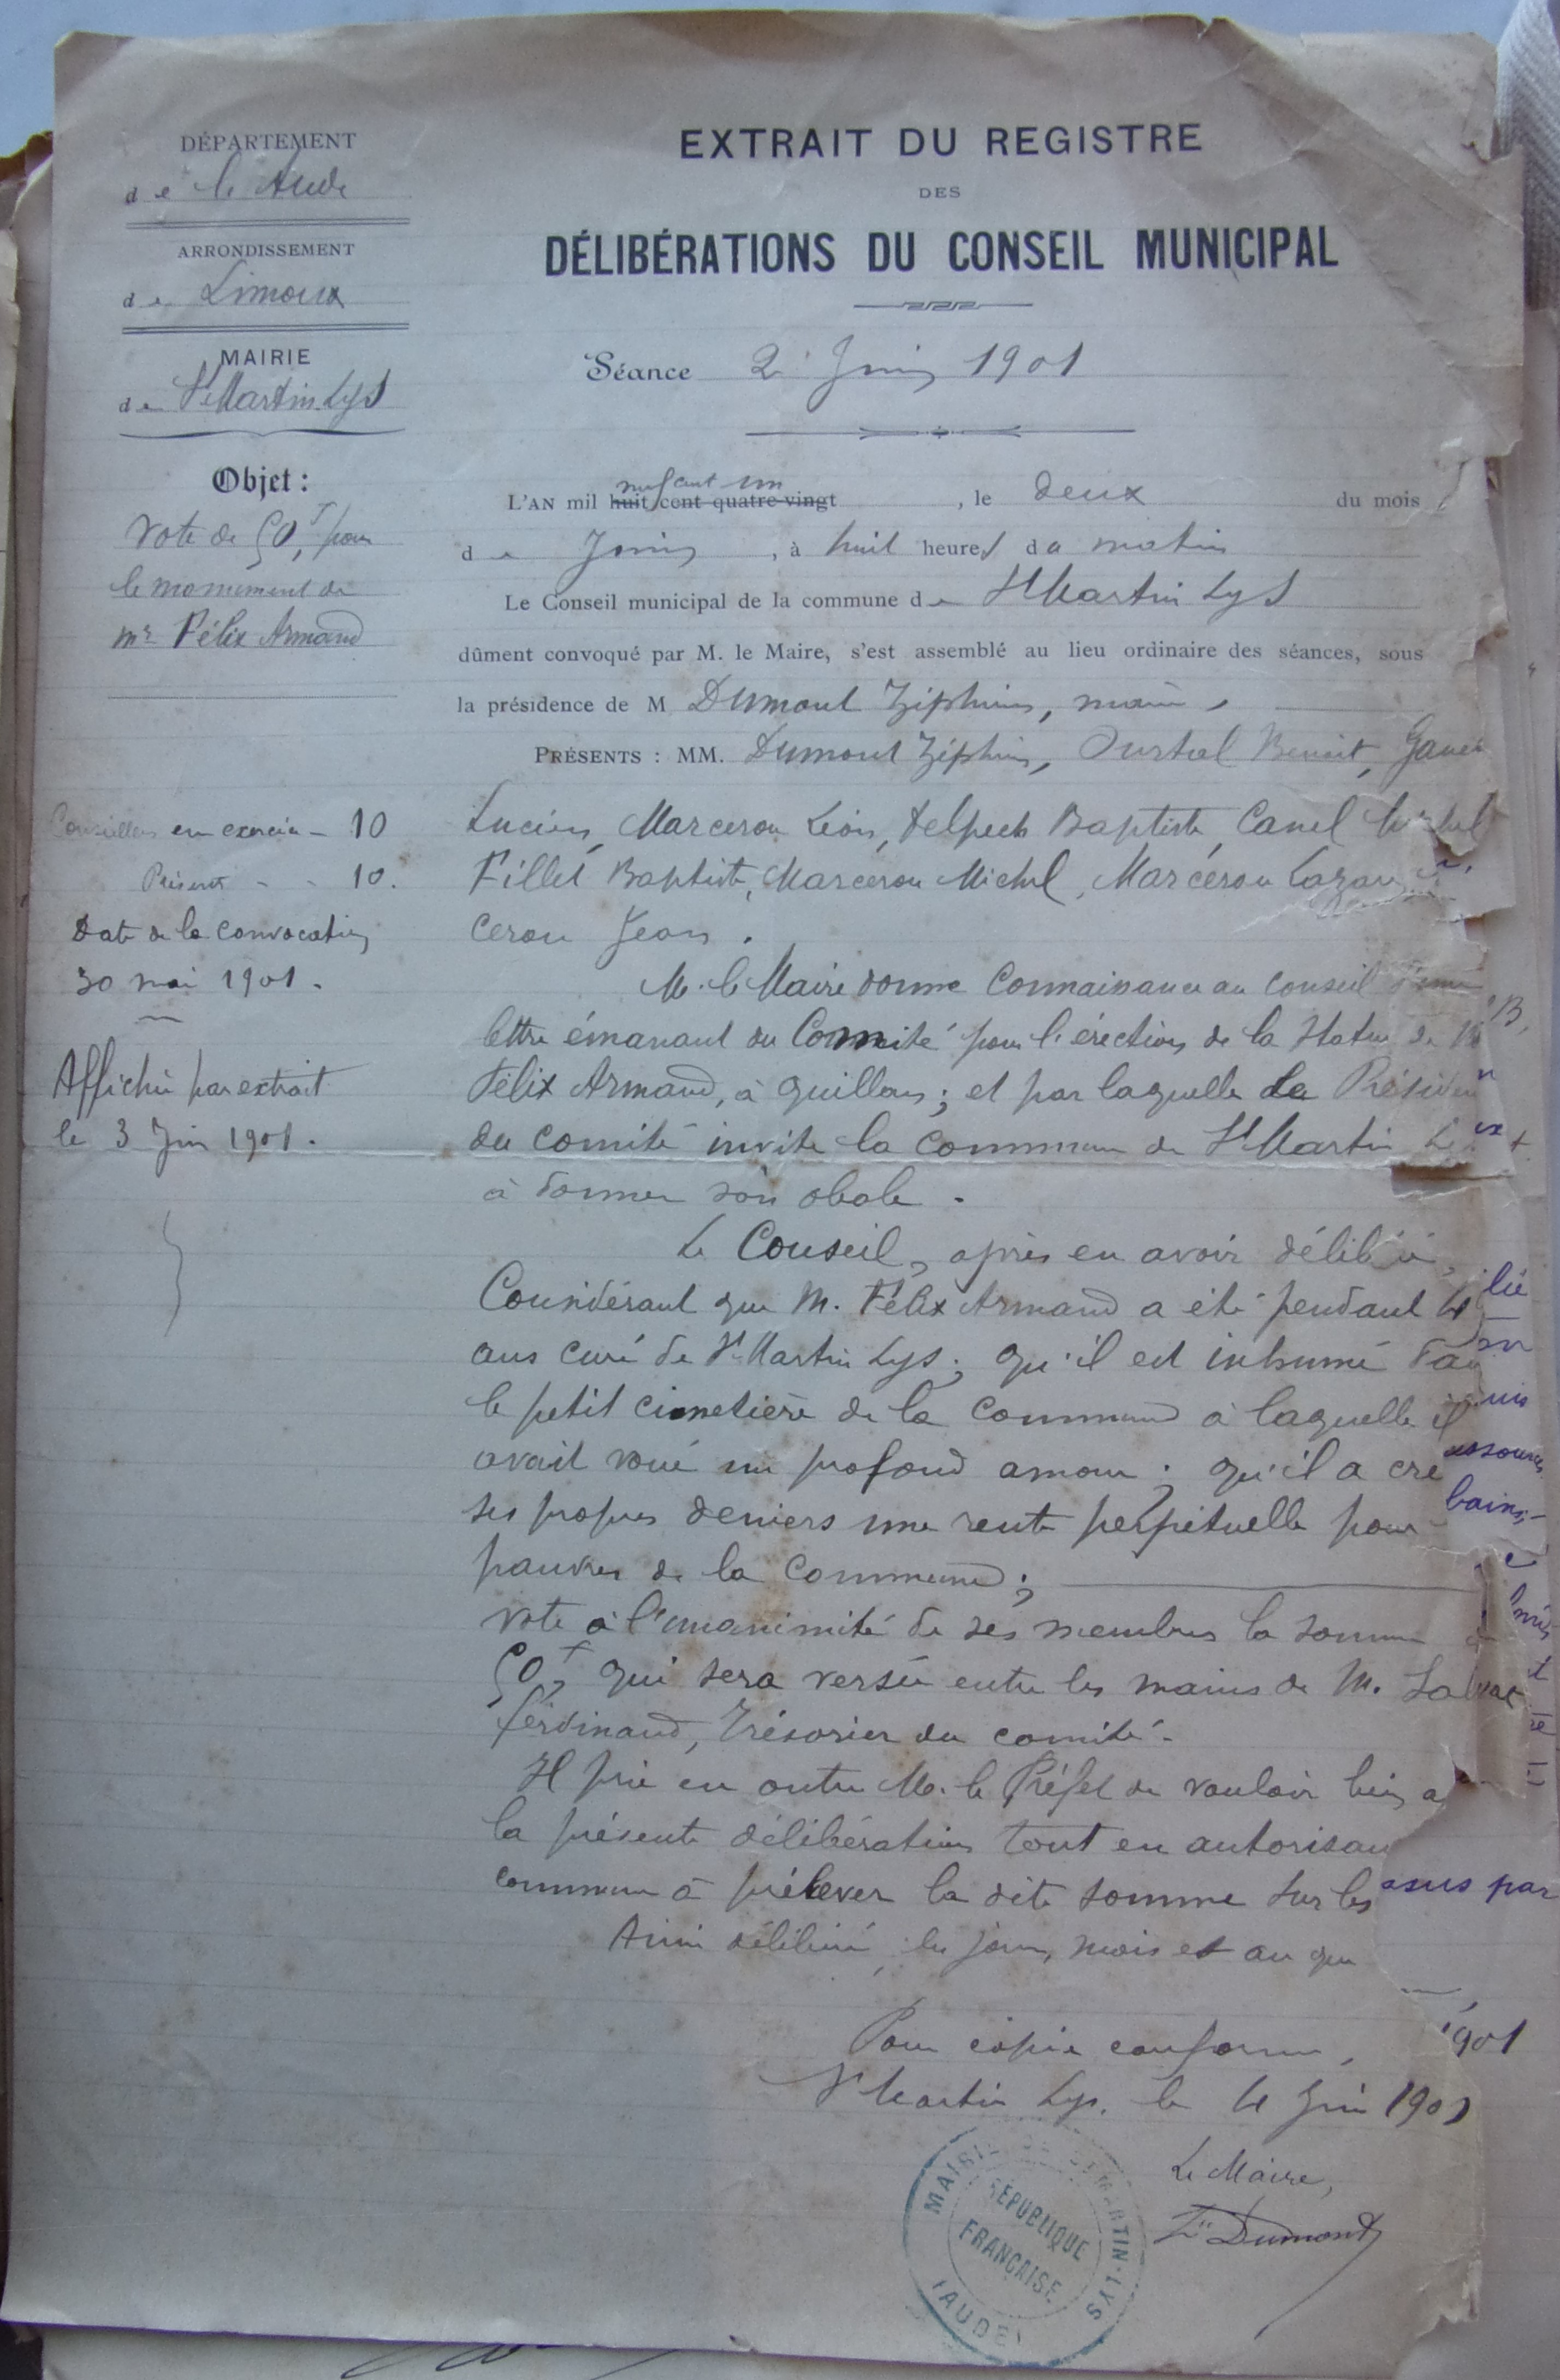 DÉPARTEMENT
de l'Aude
ARRONDISSEMENT
de Limoux
MAIRIE
de St Martin Lys
Objet :
Vote de 50f, pour
le monument de
Mr Félix Armand
Conseillers en exercice - 10
Présents - - 10.
Date de la convocation
30 mai 1901.
Affiché par extrait
le 3 Juin 1901.
EXTRAIT DU REGISTRE
DES
DÉLIBÉRATIONS DU CONSEIL MUNICIPAL
Séance 2 Juin 1901
L'AN mil huit cent quatre-vingt neuf cent un, le deux du mois
de Juin, à huit heures du matin
Le Conseil municipal de la commune de St Martin Lys
dûment convoqué par M. le Maire, s'est assemblé au lieu ordinaire des séances, sous
la présidence de M Dumont Zéphirin, maire,
PRÉSENTS : MM. Dumont Zéphirin, Benoit,
Lucien, Marcerou Léon, Delpech Baptiste, Canel
Fillet Baptiste, Marcerou Michel, Marcérou
cerou Jean.
M. le Maire donne connaissance au conseil d'une
lettre émanant du Comité pour l'érection de la Statue de M
Félix Armand, à Quillan; et par laquelle Le Présiden
du comité invite la commune de St Martin
à donner son obole.
Le Conseil, après en avoir délibéré,
Considérant que M. Félix Armand a été pendant
ans curé de St Martin Lys; qu'il est inhumé da
le petit cimetière de la commune à laquelle il
avait voué un profond amour; qu'il a cré
ses propres deniers une rente perpétuelle pour
pauvres de la commune;
vote à l'unanimité de ses membres la somme de
50f, qui sera versée entre les mains de M.
Ferdinand, Trésorier du comité.
Il prie en outre M. le Préfet de vouloir bien a
la présente délibération tout en autorisan
commune à prélever la dite somme sur les
Ainsi délibéré, les jour, mois et an que
Pour copie conforme,
St Martin Lys, le 4 Juin 1901
Le Maire,
Zin Dumont
MAIRIE DE ST MARTIN-LYS
RÉPUBLIQUE
FRANÇAISE
(AUDE)
bains,
asus par
1901